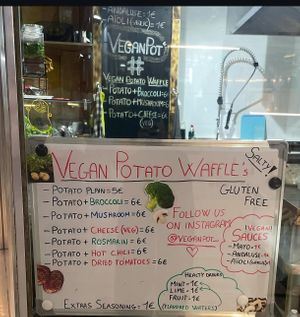 - ANDALUSE - 1€
- AÏOLI (VEG) - 1€
VEGANPOT'S
#
VEGAN POTATO WAFFLE
- POTATO + BROCCOLI = 6€
- POTATO + MUSHROOM = 6€
- POTATO + CHEESE = 6€
(VEG)
VEGAN POTATO WAFFLE'S
SALTY!
- POTATO PLAIN = 5€
- POTATO + BROCCOLI = 6€
- POTATO + MUSHROOM = 6€
- POTATO + CHEESE (VEG) = 6€
- POTATO + ROSMARIN = 6€
- POTATO + HOT CHILI = 6€
- POTATO + DRIED TOMATOES = 6€
EXTRAS SEASONING = 1€
GLUTEN
FREE
FOLLOW US
ON INSTAGRAM
@VEGANPOT
VEGAN
SAUCES
- MAYO - 1€
- ANDALUSE - 1€
- AÏOLI
HEALTY DRINKS
MINT = 1€
LIME = 1€
FRUIT = 1€
(FLAVORED WATERS)